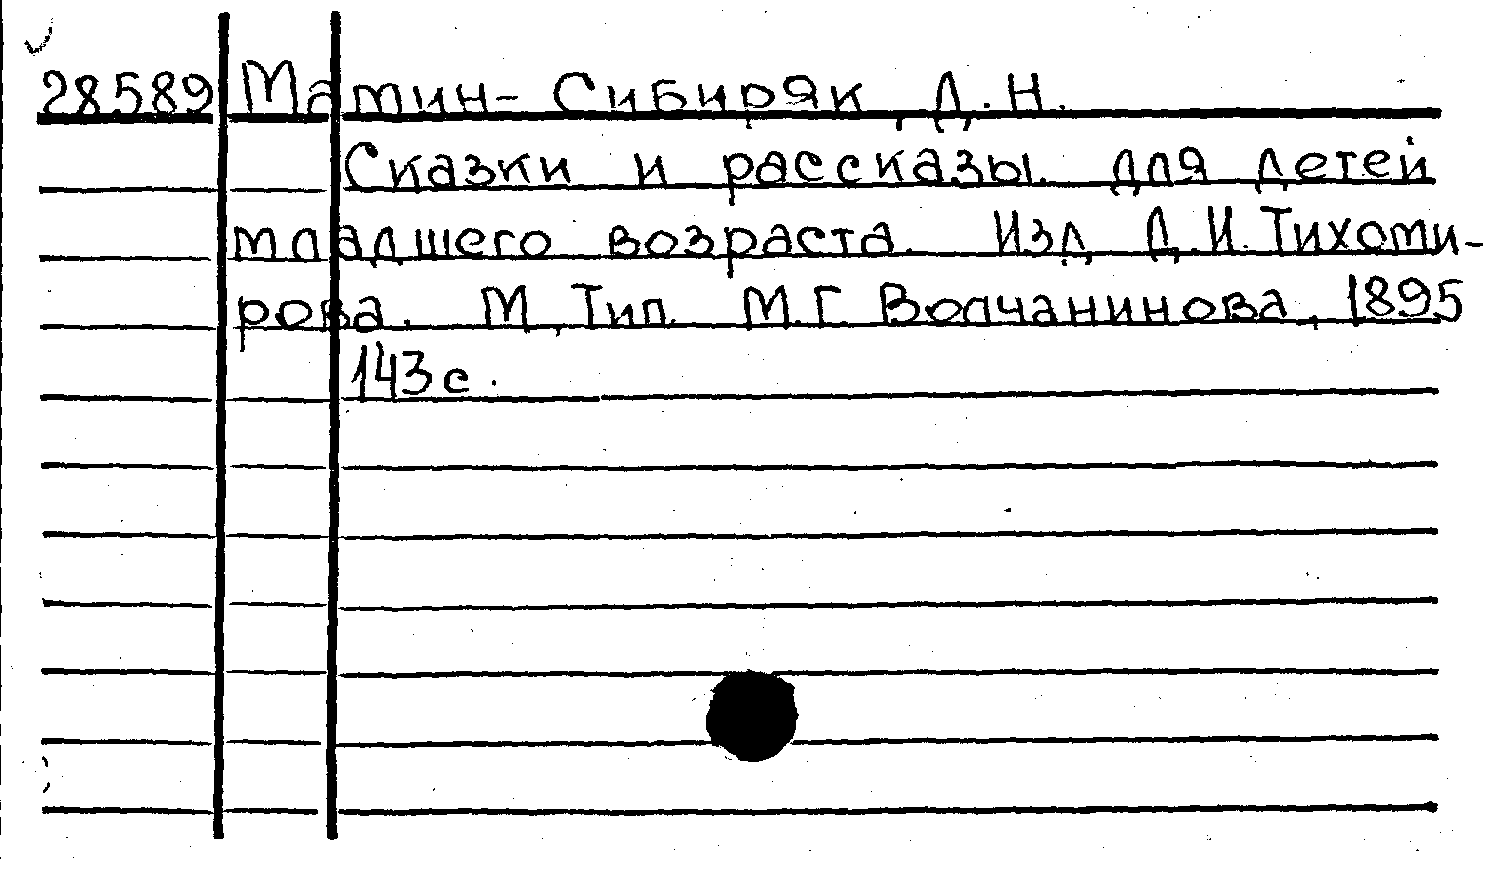 28589 Мамин-Сибиряк, Д. Н.
Сказки и рассказы для детей
младшего возраста. Изд. Д. И. Тихоми-
рова. М., Тип. М. Г. Волчанинова, 1895
143 с.